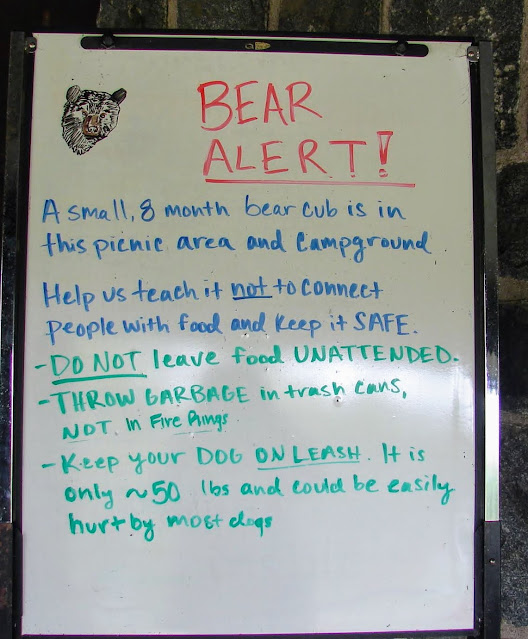 BEAR
ALERT!
A small, 8 month bear cub is in
this picnic area and Campground
Help us teach it not to connect
people with food and keep it SAFE.
- DO NOT leave food UNATTENDED.
- THROW GARBAGE in trash cans,
NOT in Fire Rings
- Keep your DOG ON LEASH. It is
only ~50 lbs and could be easily
hurt by most dogs